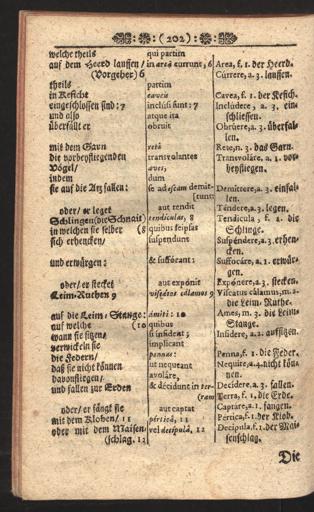 (202)
welche theils
auf dem Heerd lauffen /
(Vorgeher) 6
theils
in Keficht
eingeschlossen sind: 7
und also
überfällt er
mit dem Garn
die vorbeyfliegenden
Vögel /
indem
sie auf die Atz fallen:
oder / er leget
Schlingen (die Schnait)
in welchen sie selber (8
sich erhencken /
und erwürgen:
oder / er steckt
Leim-Ruthen 9
auf die Leim-Stange:
auf welche (10
wann sie sitzen /
verwickeln sie
die Federn /
daß sie nicht können
davonfliegen /
und fallen zur Erden
oder / er fängt sie
mit dem Kloben / 11
oder mit dem Maisen-
schlag. 12
qui partim
in areâ currunt, 6
partim
caveis
inclusi sunt: 7
atque ita
obruit
rete
transvolantes
aves,
dum
se ad escam demit-
(tunt:
aut tendit
tendiculas, 8
quibus seipsas
suspendunt
& suffocant:
aut exponit
viscatos calamos 9
amiti: 10
quibus
si insident;
implicant
pennas:
ut nequeant
avolare,
& decidunt in ter-
(ram
aut captat
perticâ, 11
vel decipulâ. 12
Area, f. 1. der Heerd.
Currere, a. 3. lauffen.
Cavea, f. 1. der Kefich.
Includere, a. 3. ein-
schliessen.
Obruere, a. 3. überfal-
len.
Rete, n. 3. das Garn.
Transvolare, a. 1. vor-
beyfliegen.
Demittere, a. 3. einfal-
len.
Tendere, a. 3. legen.
Tendicula, f. 1. die
Schlinge.
Suspendere, a. 3. erhen-
cken.
Suffocare, a. 1. erwür-
gen.
Exponere, a. 3. stecken.
Viscatus calamus, m. 2.
die Leim-Ruthe.
Ames, m. 3. die Leim-
Stange.
Insidere, a. 2. aufsitzen.
Penna, f. 1. die Feder.
Nequire, a. 4. nicht kön-
nen.
Decidere, a. 3. fallen.
Terra, f. 1. die Erde.
Captare, a. 1. fangen.
Pertica, f. 1. der Klob.
Decipula, f. 1. der Mai-
senschlag.
Die